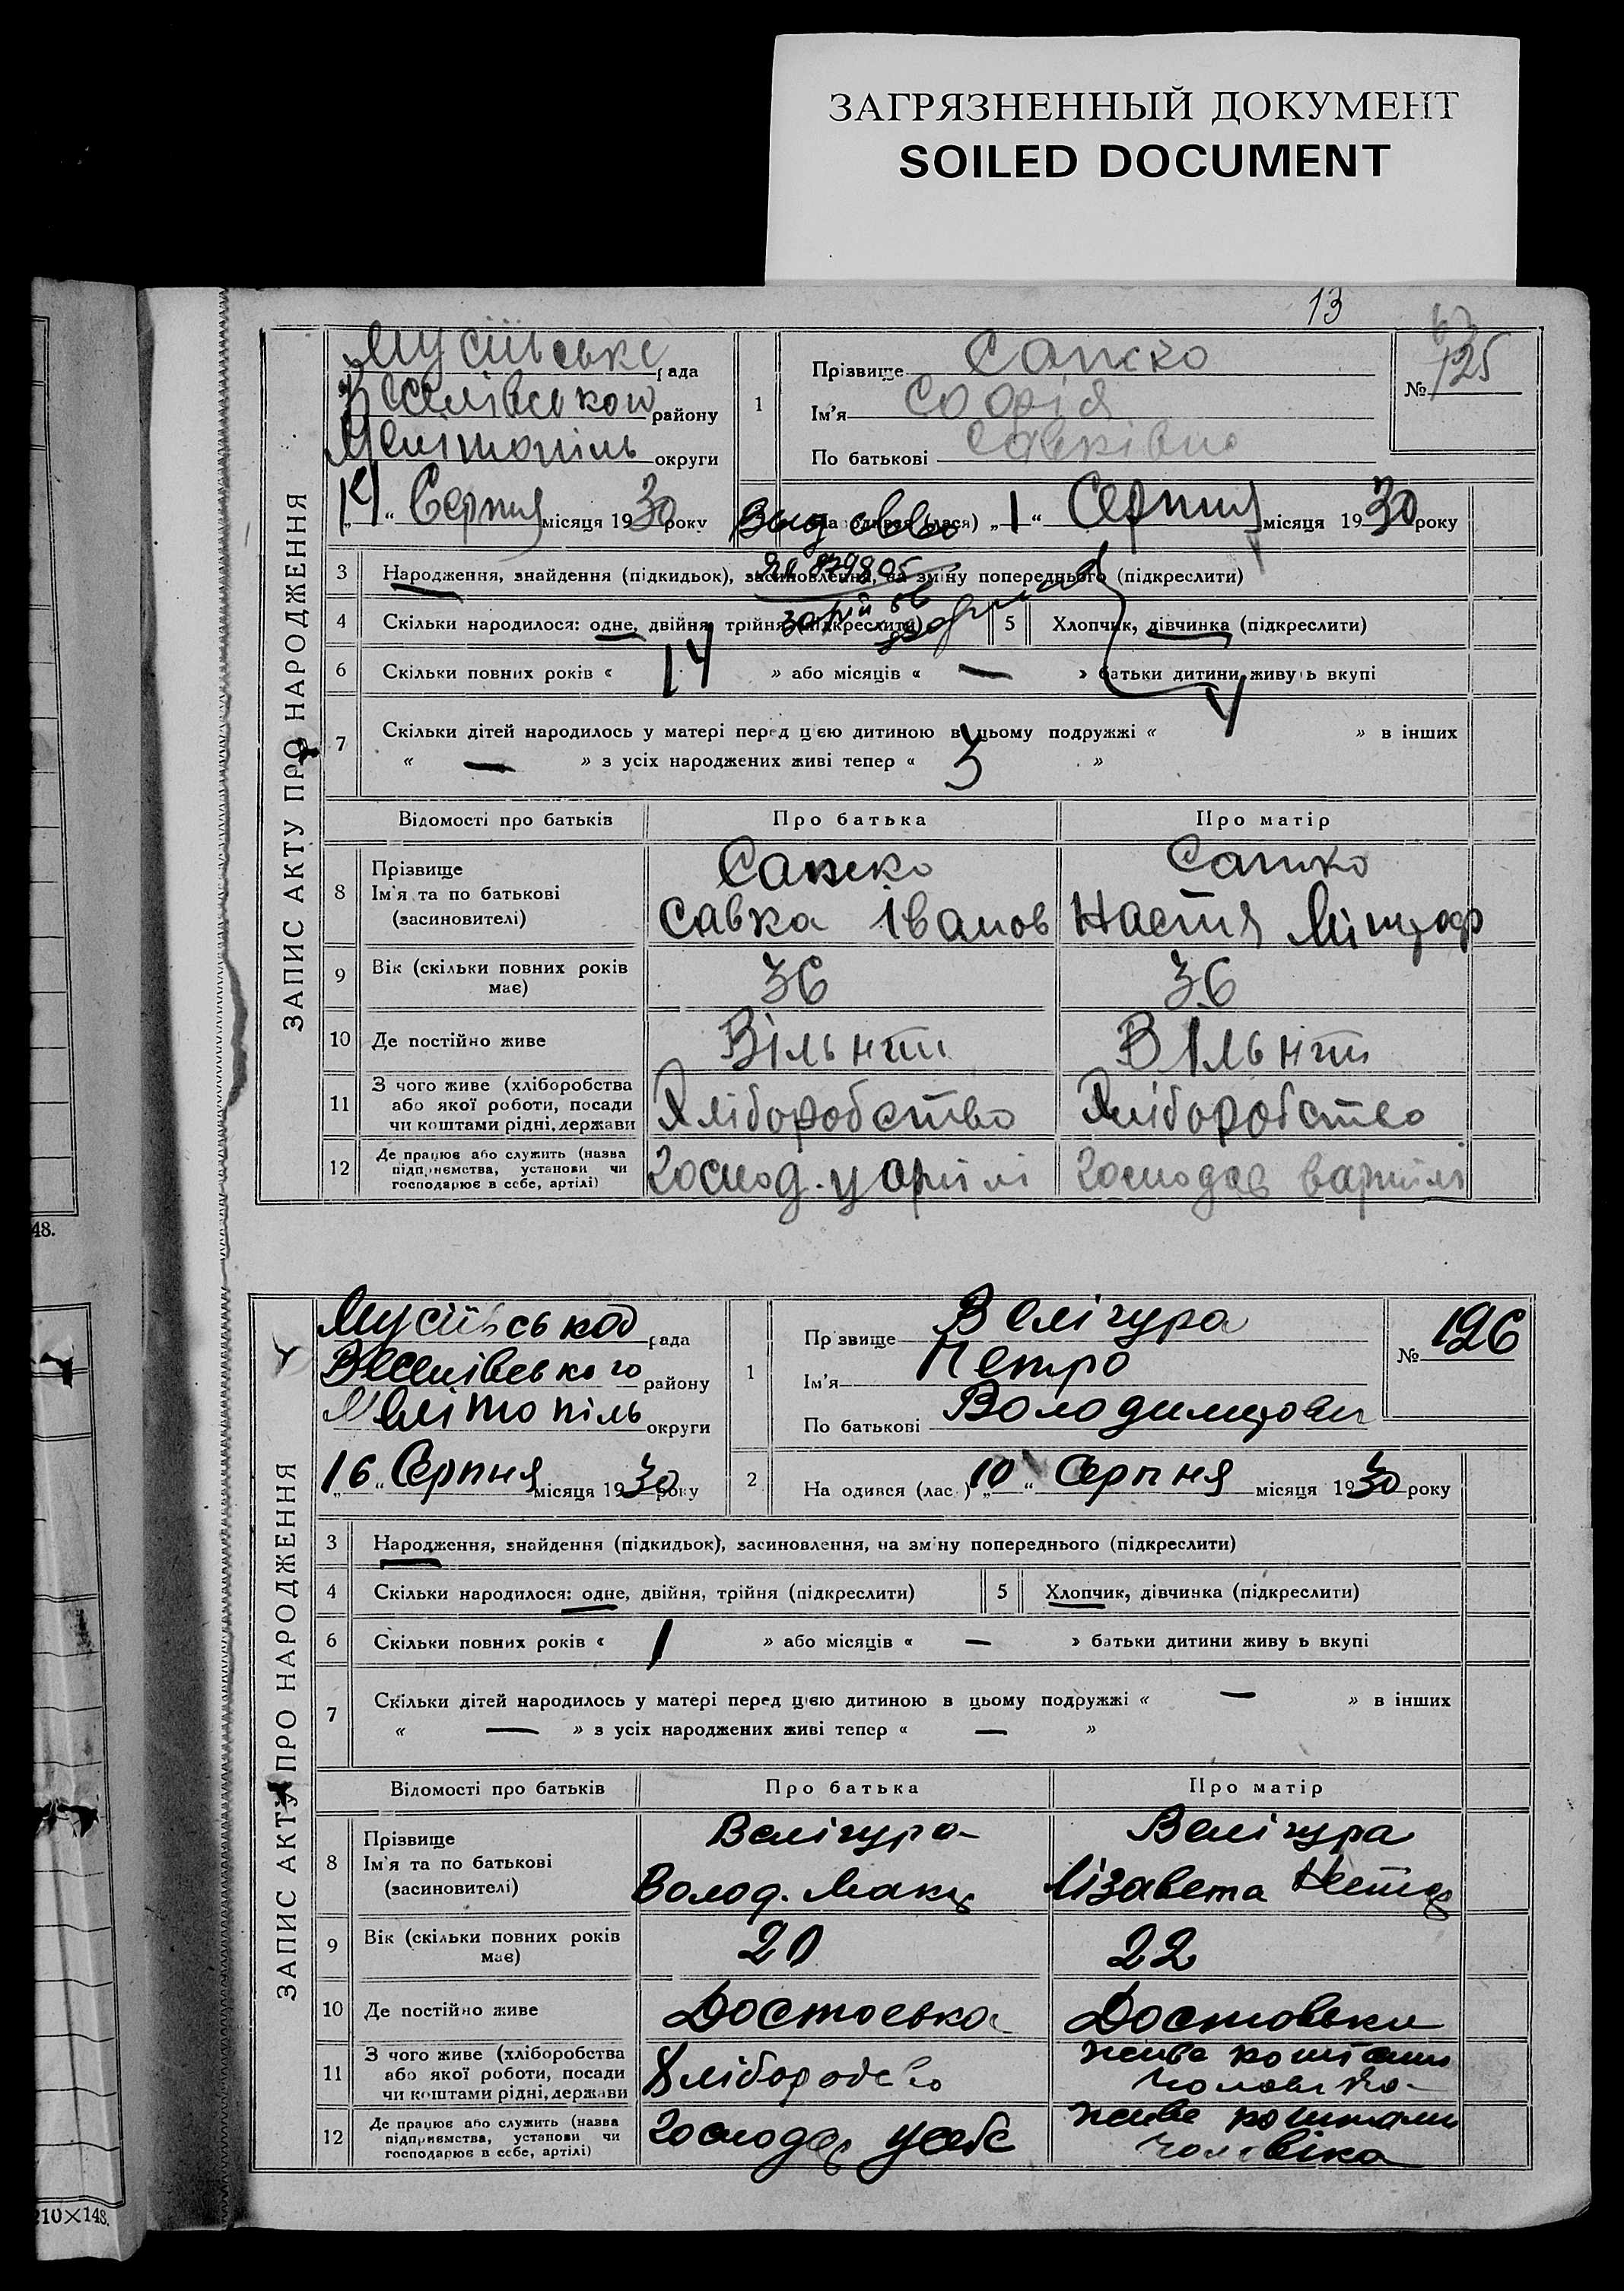 ЗАГРЯЗНЕННЫЙ ДОКУМЕНТ
SOILED DOCUMENT
13
ЗАПИС АКТУ ПРО НАРОДЖЕННЯ
рада
району
Мелітопіль округи
Серпня місяця 1930 року
1
Прізвище
Ім'я Софія
По батькові Савківна
№ 125
„1“ Серпня місяця 1930 року
3 Народження, знайдення (підкидьок), засиновлення, на зміну попереднього (підкреслити)
4 Скільки народилося: одне, двійня, трійня (підкреслити)
5 Хлопчик, дівчинка (підкреслити)
6 Скільки повних років « 14 » або місяців « — » батьки дитини живуть вкупі
7 Скільки дітей народилось у матері перед цією дитиною в цьому подружжі « 4 » в інших
« — » з усіх народжених живі тепер « 3 »
Відомості про батьків Про батька Про матір
8 Прізвище
Ім'я та по батькові
(засиновителі)
Савка Іванов
Настя
9 Вік (скільки повних років має) 36 36
10 Де постійно живе
11 З чого живе (хліборобства або якої роботи, посади чи коштами рідні, держави Хліборобство Хліборобство
12 Де працює або служить (назва підприємства, установи чи господарює в себе, артілі) Господ. у артілі Господар в артілі
48.
ЗАПИС АКТУ ПРО НАРОДЖЕННЯ
Мусіївської рада
Веселівського району
Мелітопіль округи
16 Серпня місяця 1930 року
1
Прізвище Велігура
Ім'я Петро
По батькові Володимирович
№ 126
2 Народився (лась) „10“ Серпня місяця 1930 року
3 Народження, знайдення (підкидьок), засиновлення, на зміну попереднього (підкреслити)
4 Скільки народилося: одне, двійня, трійня (підкреслити)
5 Хлопчик, дівчинка (підкреслити)
6 Скільки повних років « 1 » або місяців « — » батьки дитини живуть вкупі
7 Скільки дітей народилось у матері перед цією дитиною в цьому подружжі « — » в інших
« — » з усіх народжених живі тепер « — »
Відомості про батьків Про батька Про матір
8 Прізвище Велігура Велігура
Ім'я та по батькові
(засиновителі)
Волод. Лізавета
9 Вік (скільки повних років має) 20 22
10 Де постійно живе
11 З чого живе (хліборобства або якої роботи, посади чи коштами рідні, держави живе коштами чоловіка
12 Де працює або служить (назва підприємства, установи чи господарює в себе, артілі) Господар у себе живе коштами чоловіка
210×148.